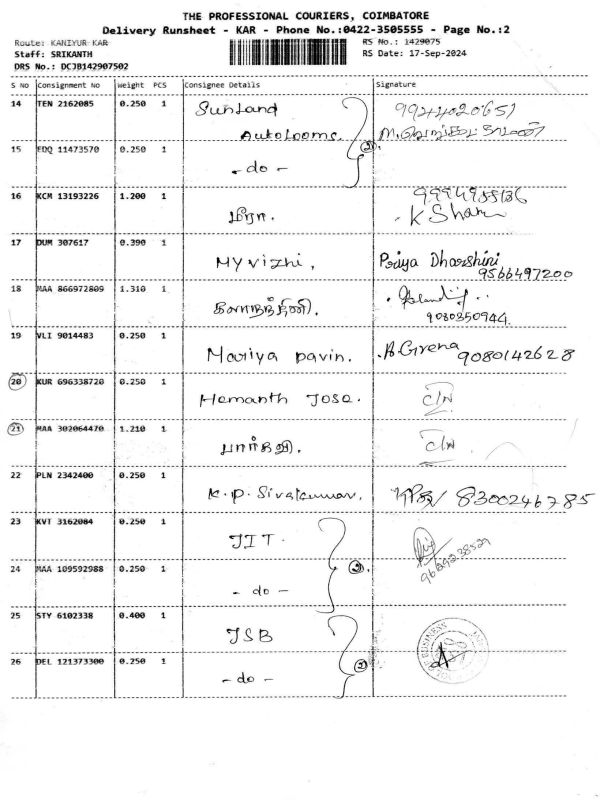 THE PROFESSIONAL COURIERS, COIMBATORE
Delivery Runsheet - KAR - Phone No.:0422-3505555 - Page No.:2
Route: KANIYUR-KAR RS No.: 1429075
Staff: SRIKANTH RS Date: 17-Sep-2024
DRS No.: DCJB142907502
S No Consignment No Weight PCS Consignee Details Signature
14 TEN 2162085 0.250 1 Sunland 9944020651
Autolooms. (2).
15 EDQ 11473570 0.250 1
- do -
16 KCM 13193226 1.200 1 9994988136
மீரா. K Sharm
17 DUM 307617 0.390 1
Myvizhi, Priya Dharshini
9566497200
18 MAA 866972809 1.310 1
கலாநந்தினி.
9080350944.
19 VLI 9014483 0.250 1
Mariya pavin. A.Girena 9080142628
20 KUR 696338720 0.250 1
Hemanth Jose. C/N
21 MAA 302064470 1.210 1
பார்கவி. C/N
22 PLN 2342400 0.250 1
K.P. Sivakumar. 8300246785
23 KVT 3162084 0.250 1
JIT.
24 MAA 109592988 0.250 1 (2).
- do -
25 STY 6102338 0.400 1
JSB
26 DEL 121373300 0.250 1 (2)
- do -
BUSINESS